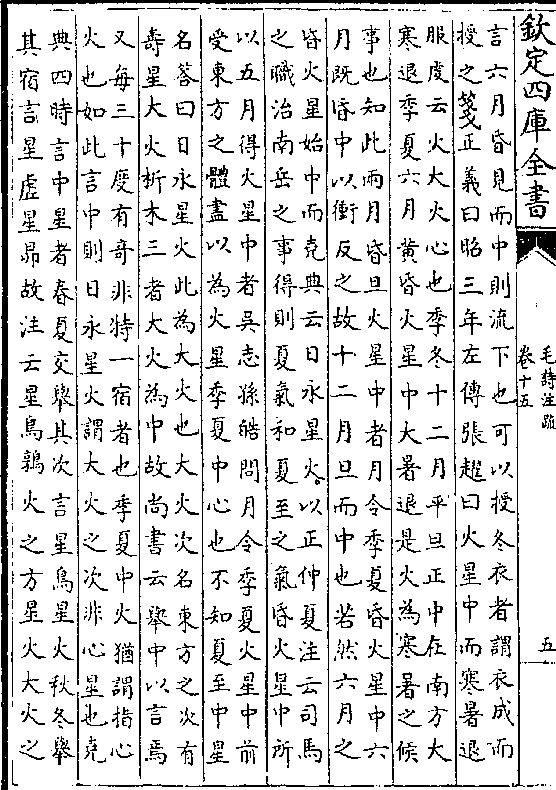 欽定四庫全書
毛詩注疏
卷十五
五
言六月昏見而中則流下也可以授冬衣者謂衣成而
授之箋正義曰昭三年左傳張趯曰火星中而寒暑退
服虔云火大火心也季冬十二月平旦正中在南方大
寒退季夏六月黄昏火星中大暑退是火為寒暑之候
事也知此兩月昏旦火星中者月令季夏昏火星中六
月既昏中以衝反之故十二月旦而中也若然六月之
昏火星始中而堯典云日永星火以正仲夏注云司馬
之職治南岳之事得則夏氣和夏至之氣昏火星中所
以五月得火星中者吳志孫皓問月令季夏火星中前
受東方之體盡以為火星季夏中心也不知夏至中星
名荅曰日永星火此為大火也大火次名東方之次有
壽星大火析木三者大火為中故尚書云舉中以言焉
又每三十度有奇非特一宿者也季夏中火猶謂指心
火也如此言中則日永星火謂大火之次非心星也堯
典四時言中星者春夏交舉其次言星鳥星火秋冬舉
其宿言星虛星昴故注云星鳥鶉火之方星火大火之